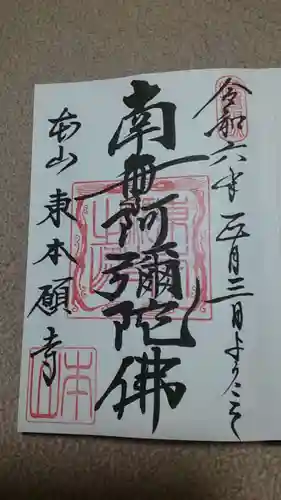 令和六年正月三日ようこそ
南無阿彌陀佛
本山東本願寺
本山